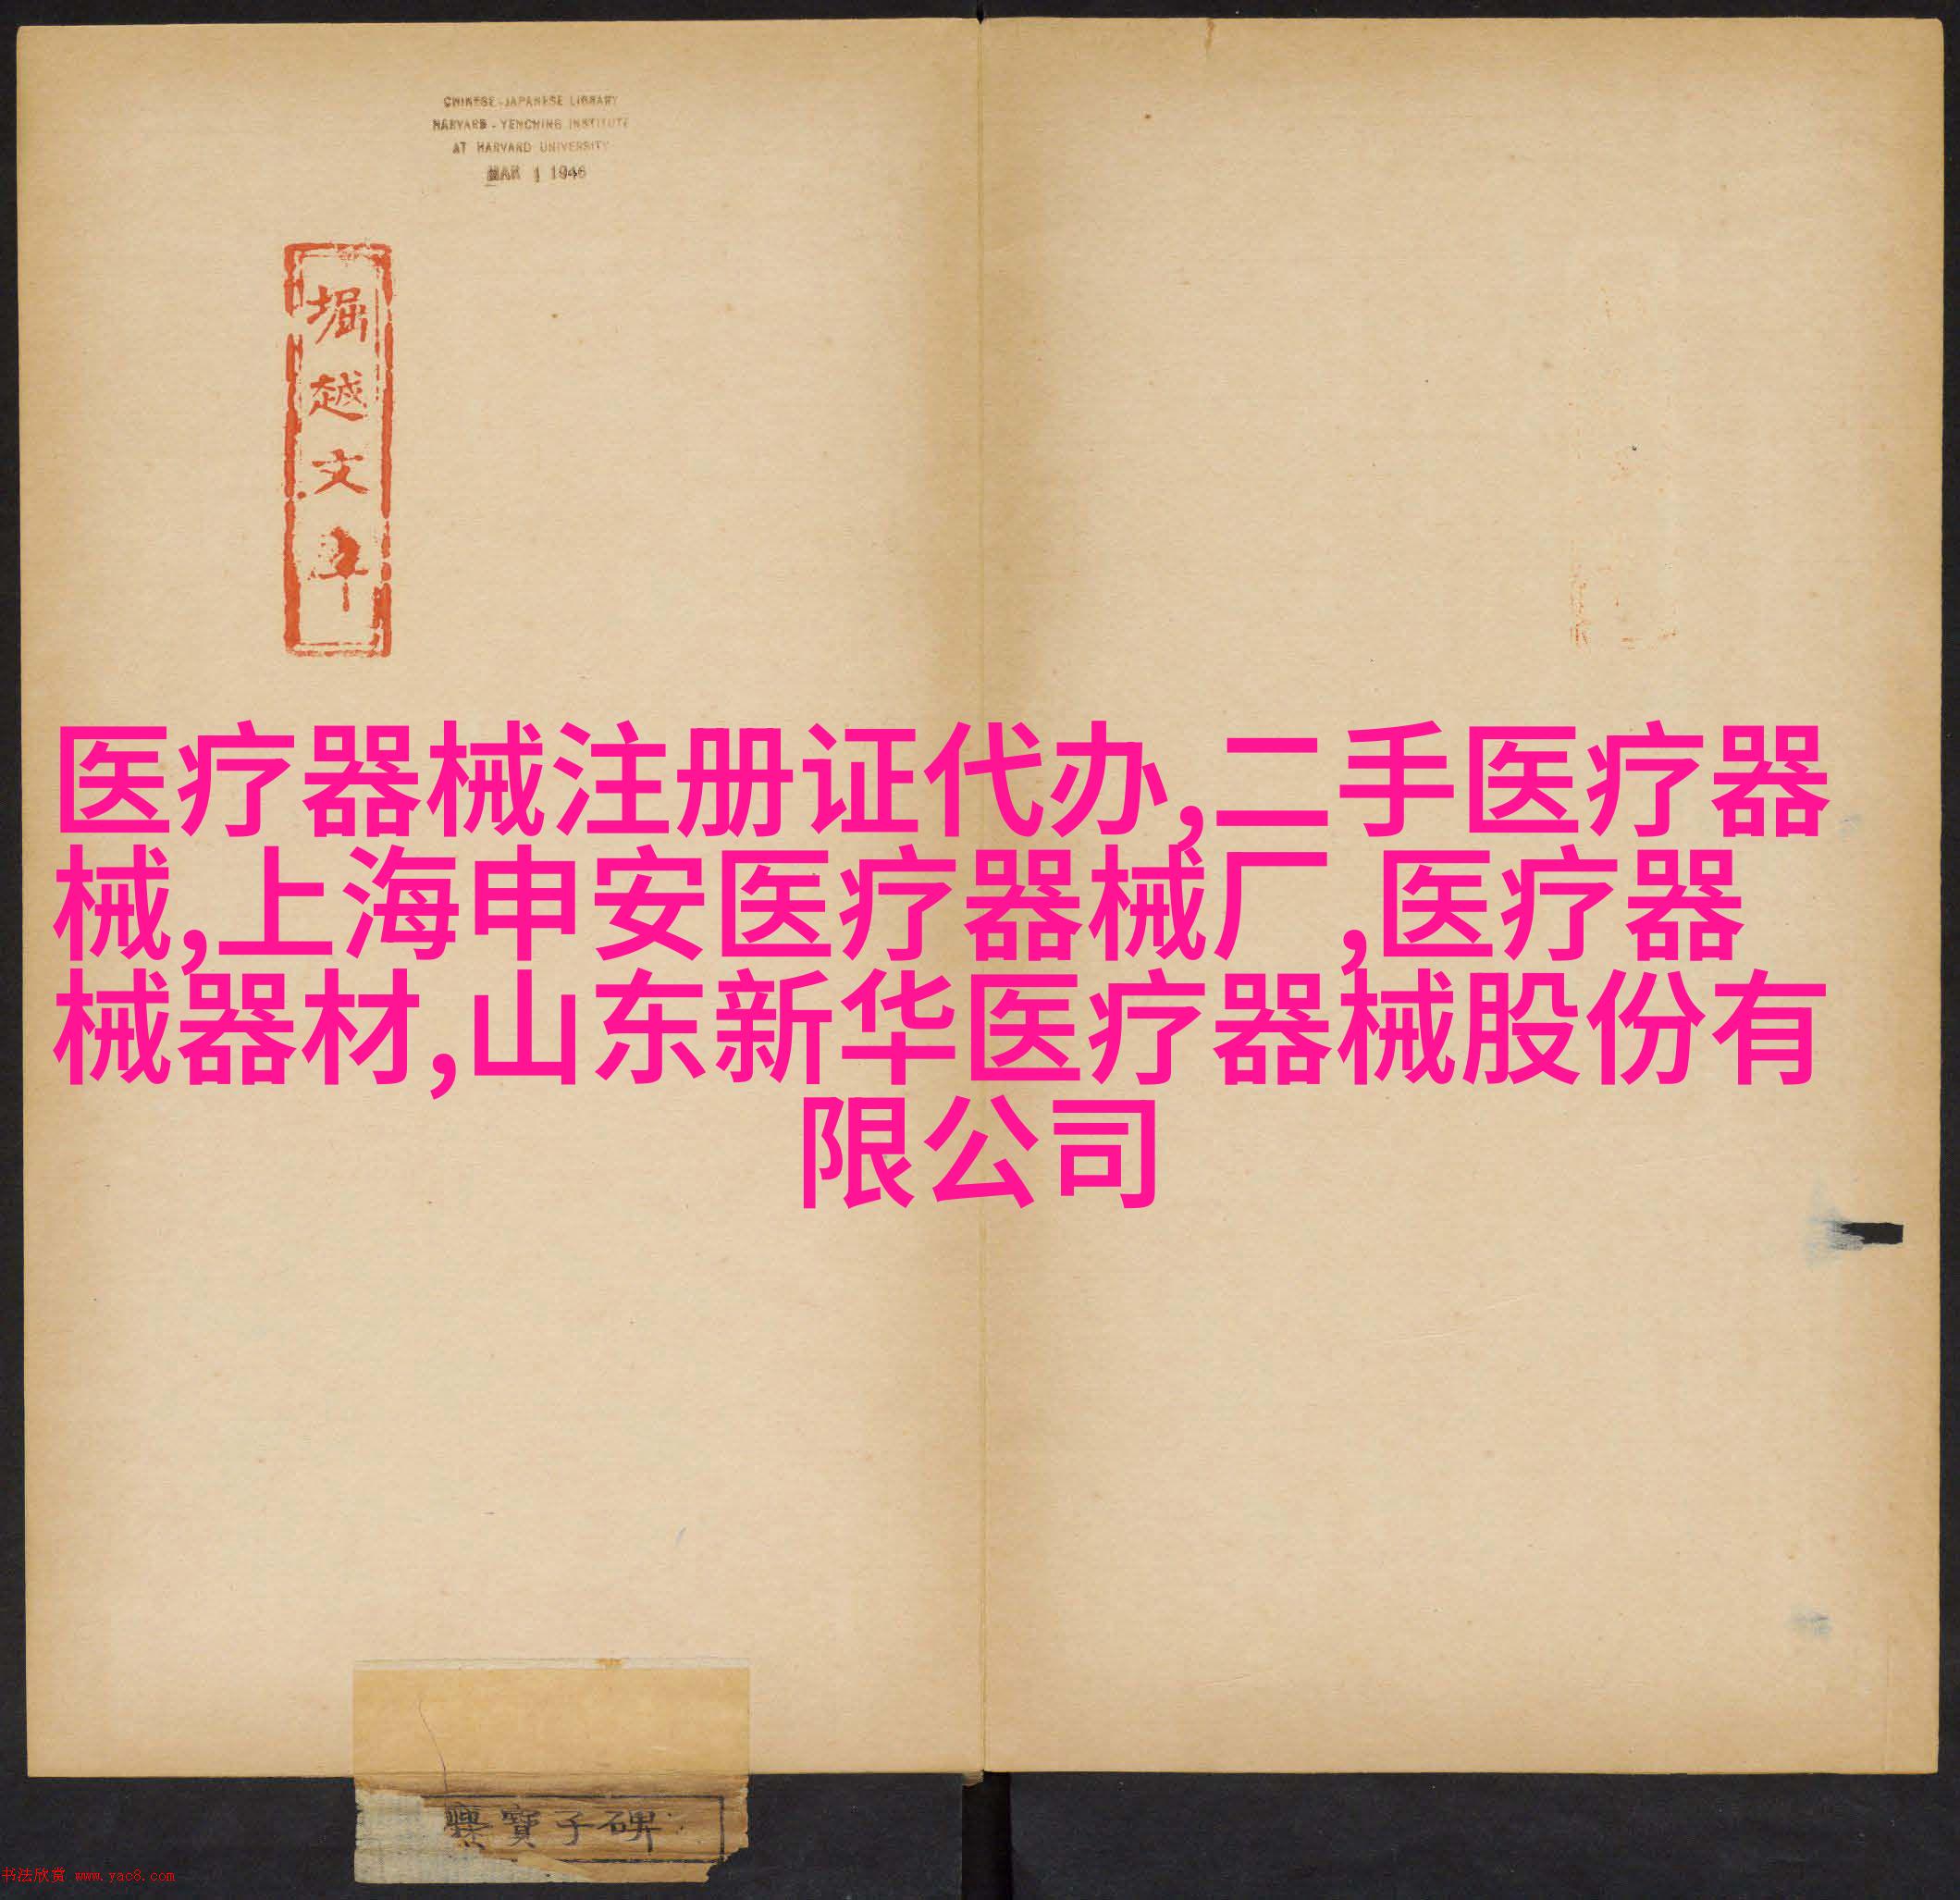 CHINESE-JAPANESE LIBRARY
HARVARD-YENCHING INSTITUTE
AT HARVARD UNIVERSITY
MAR 1 1946
堀
越
文
医疗器械注册证代办,二手医疗器
械,上海申安医疗器械厂,医疗器
械器材,山东新华医疗器械股份有
限公司
爨寶子碑
书法欣赏 www.yac8.com